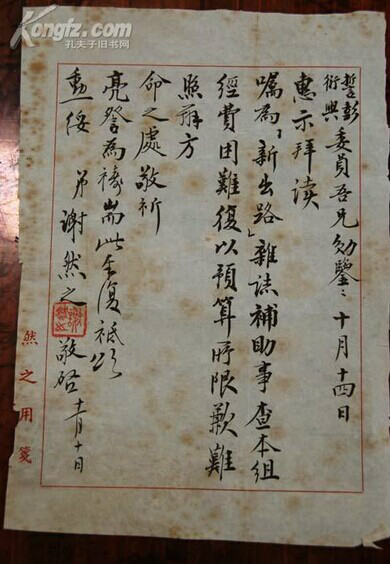 Kongfz.com
孔夫子旧书网
委員吾兄勛鑒：十月十四日
惠示拜读
囑為「新出路」雜誌補助事查本組
經費困難復以預算所限歉難
照辦方
命之處敬祈
亮詧為禱耑此奉復祗頌
勛綏
弟謝然之敬啓 十一月十日
然之用箋